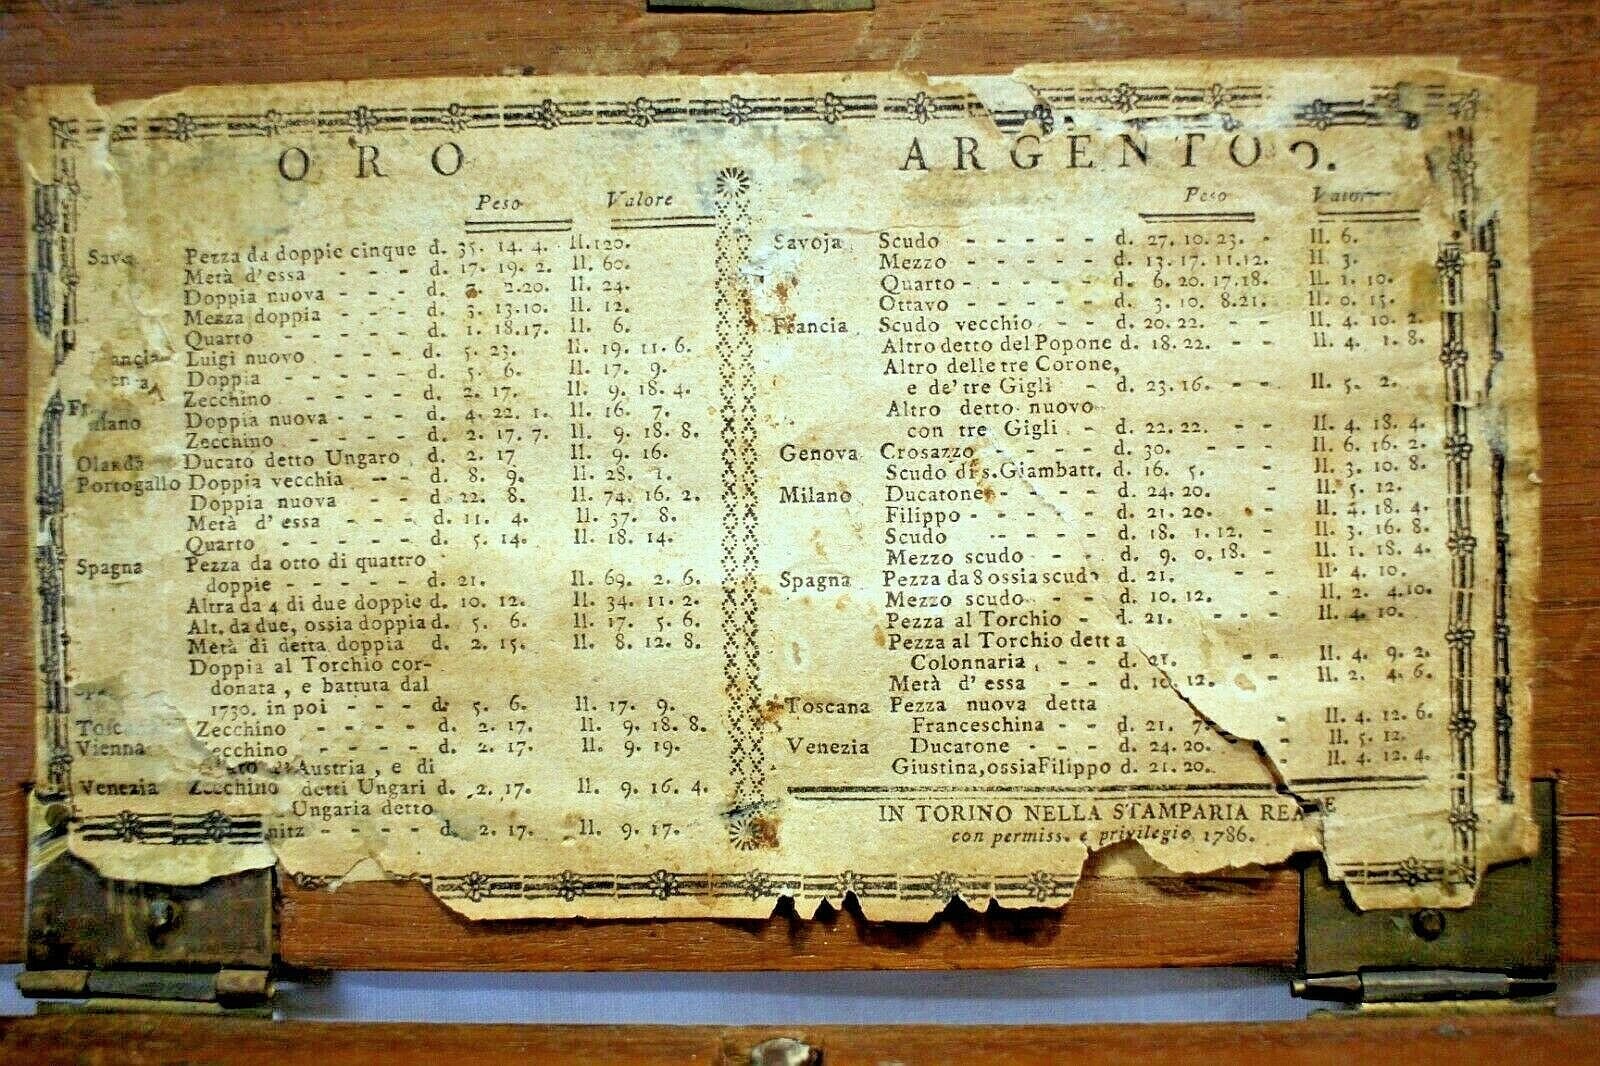 ORO
Peso Valore
Pezza da doppie cinque d. 35. 14. 4. ll. 120.
Metà d'essa - - - d. 17. 19. 2. ll. 60.
Doppia nuova - - - d. 2.20. ll. 24.
Mezza doppia - - - d. 3. 13.10. ll. 12.
Quarto - - - - d. 1. 18.17. ll. 6.
Luigi nuovo - - - d. 5. 23. ll. 19. 11. 6.
Doppia - - - - - d. 5. 6. ll. 17. 9.
Zecchino - - - - d. 2. 17. ll. 9. 18. 4.
Doppia nuova - - - d. 4. 22. 1. ll. 16. 7.
Zecchino - - - - d. 2. 17. 7. ll. 9. 18. 8.
Olanda Ducato detto Ungaro d. 2. 17 ll. 9. 16.
Portogallo Doppia vecchia - - d. 8. 9. ll. 28. 1.
Doppia nuova - - d. 22. 8. ll. 74. 16. 2.
Metà d'essa - - - d. 11. 4. ll. 37. 8.
Quarto - - - - - d. 5. 14. ll. 18. 14.
Spagna Pezza da otto di quattro
doppie - - - - - d. 21. ll. 69. 2. 6.
Altra da 4 di due doppie d. 10. 12. ll. 34. 11. 2.
Alt. da due, ossia doppia d. 5. 6. ll. 17. 5. 6.
Metà di detta doppia d. 2. 15. ll. 8. 12. 8.
Doppia al Torchio cor-
donata, e battuta dal
1730. in poi - - - d. 5. 6. ll. 17. 9.
Zecchino - - - - d. 2. 17. ll. 9. 18. 8.
Vienna Zecchino - - - - d. 2. 17. ll. 9. 19.
d'Austria, e di
Venezia Zecchino detti Ungari d. 2. 17. ll. 9. 16. 4.
Ungaria detto
nitz - - - - d. 2. 17. ll. 9. 17.
ARGENTO.
Peso Valor
Savoja Scudo - - - - - d. 27. 10. 23. - ll. 6.
Mezzo - - - - - d. 13. 17. 11.12. ll. 3.
Quarto - - - - - d. 6. 20. 17.18. ll. 1. 10.
Ottavo - - - - - d. 3. 10. 8.21. ll. 0. 15.
Francia Scudo vecchio - - d. 20. 22. - - ll. 4. 10. 2.
Altro detto del Popone d. 18. 22. - - ll. 4. 1. 8.
Altro delle tre Corone,
e de' tre Gigli - d. 23. 16. - - ll. 5. 2.
Altro detto nuovo
con tre Gigli - d. 22. 22. - - ll. 4. 18. 4.
Genova Crosazzo - - - - d. 30. - - ll. 6. 16. 2.
Scudo di s. Giambatt. d. 16. 5. - ll. 3. 10. 8.
Milano Ducatone - - - - d. 24. 20. - ll. 5. 12.
Filippo - - - - - d. 21. 20. - ll. 4. 18. 4.
Scudo - - - - - d. 18. 1. 12. - ll. 3. 16. 8.
Mezzo scudo - - - d. 9. 0. 18. - ll. 1. 18. 4.
Spagna Pezza da 8 ossia scudo d. 21. - - ll. 4. 10.
Mezzo scudo - - - d. 10. 12. - - ll. 2. 4.10.
Pezza al Torchio - d. 21. - - ll. 4. 10.
Pezza al Torchio detta
Colonnaria, - - d. 21. - - ll. 4. 9. 2.
Metà d'essa - - d. 10. 12. - - ll. 2. 4. 6.
Toscana Pezza nuova detta
Franceschina - - d. 21. - ll. 4. 12. 6.
Venezia Ducatone - - - d. 24. 20. ll. 5. 12.
Giustina, ossia Filippo d. 21. 20. - ll. 4. 12. 4.
IN TORINO NELLA STAMPARIA REA E
con permiss. e privilegio, 1786.